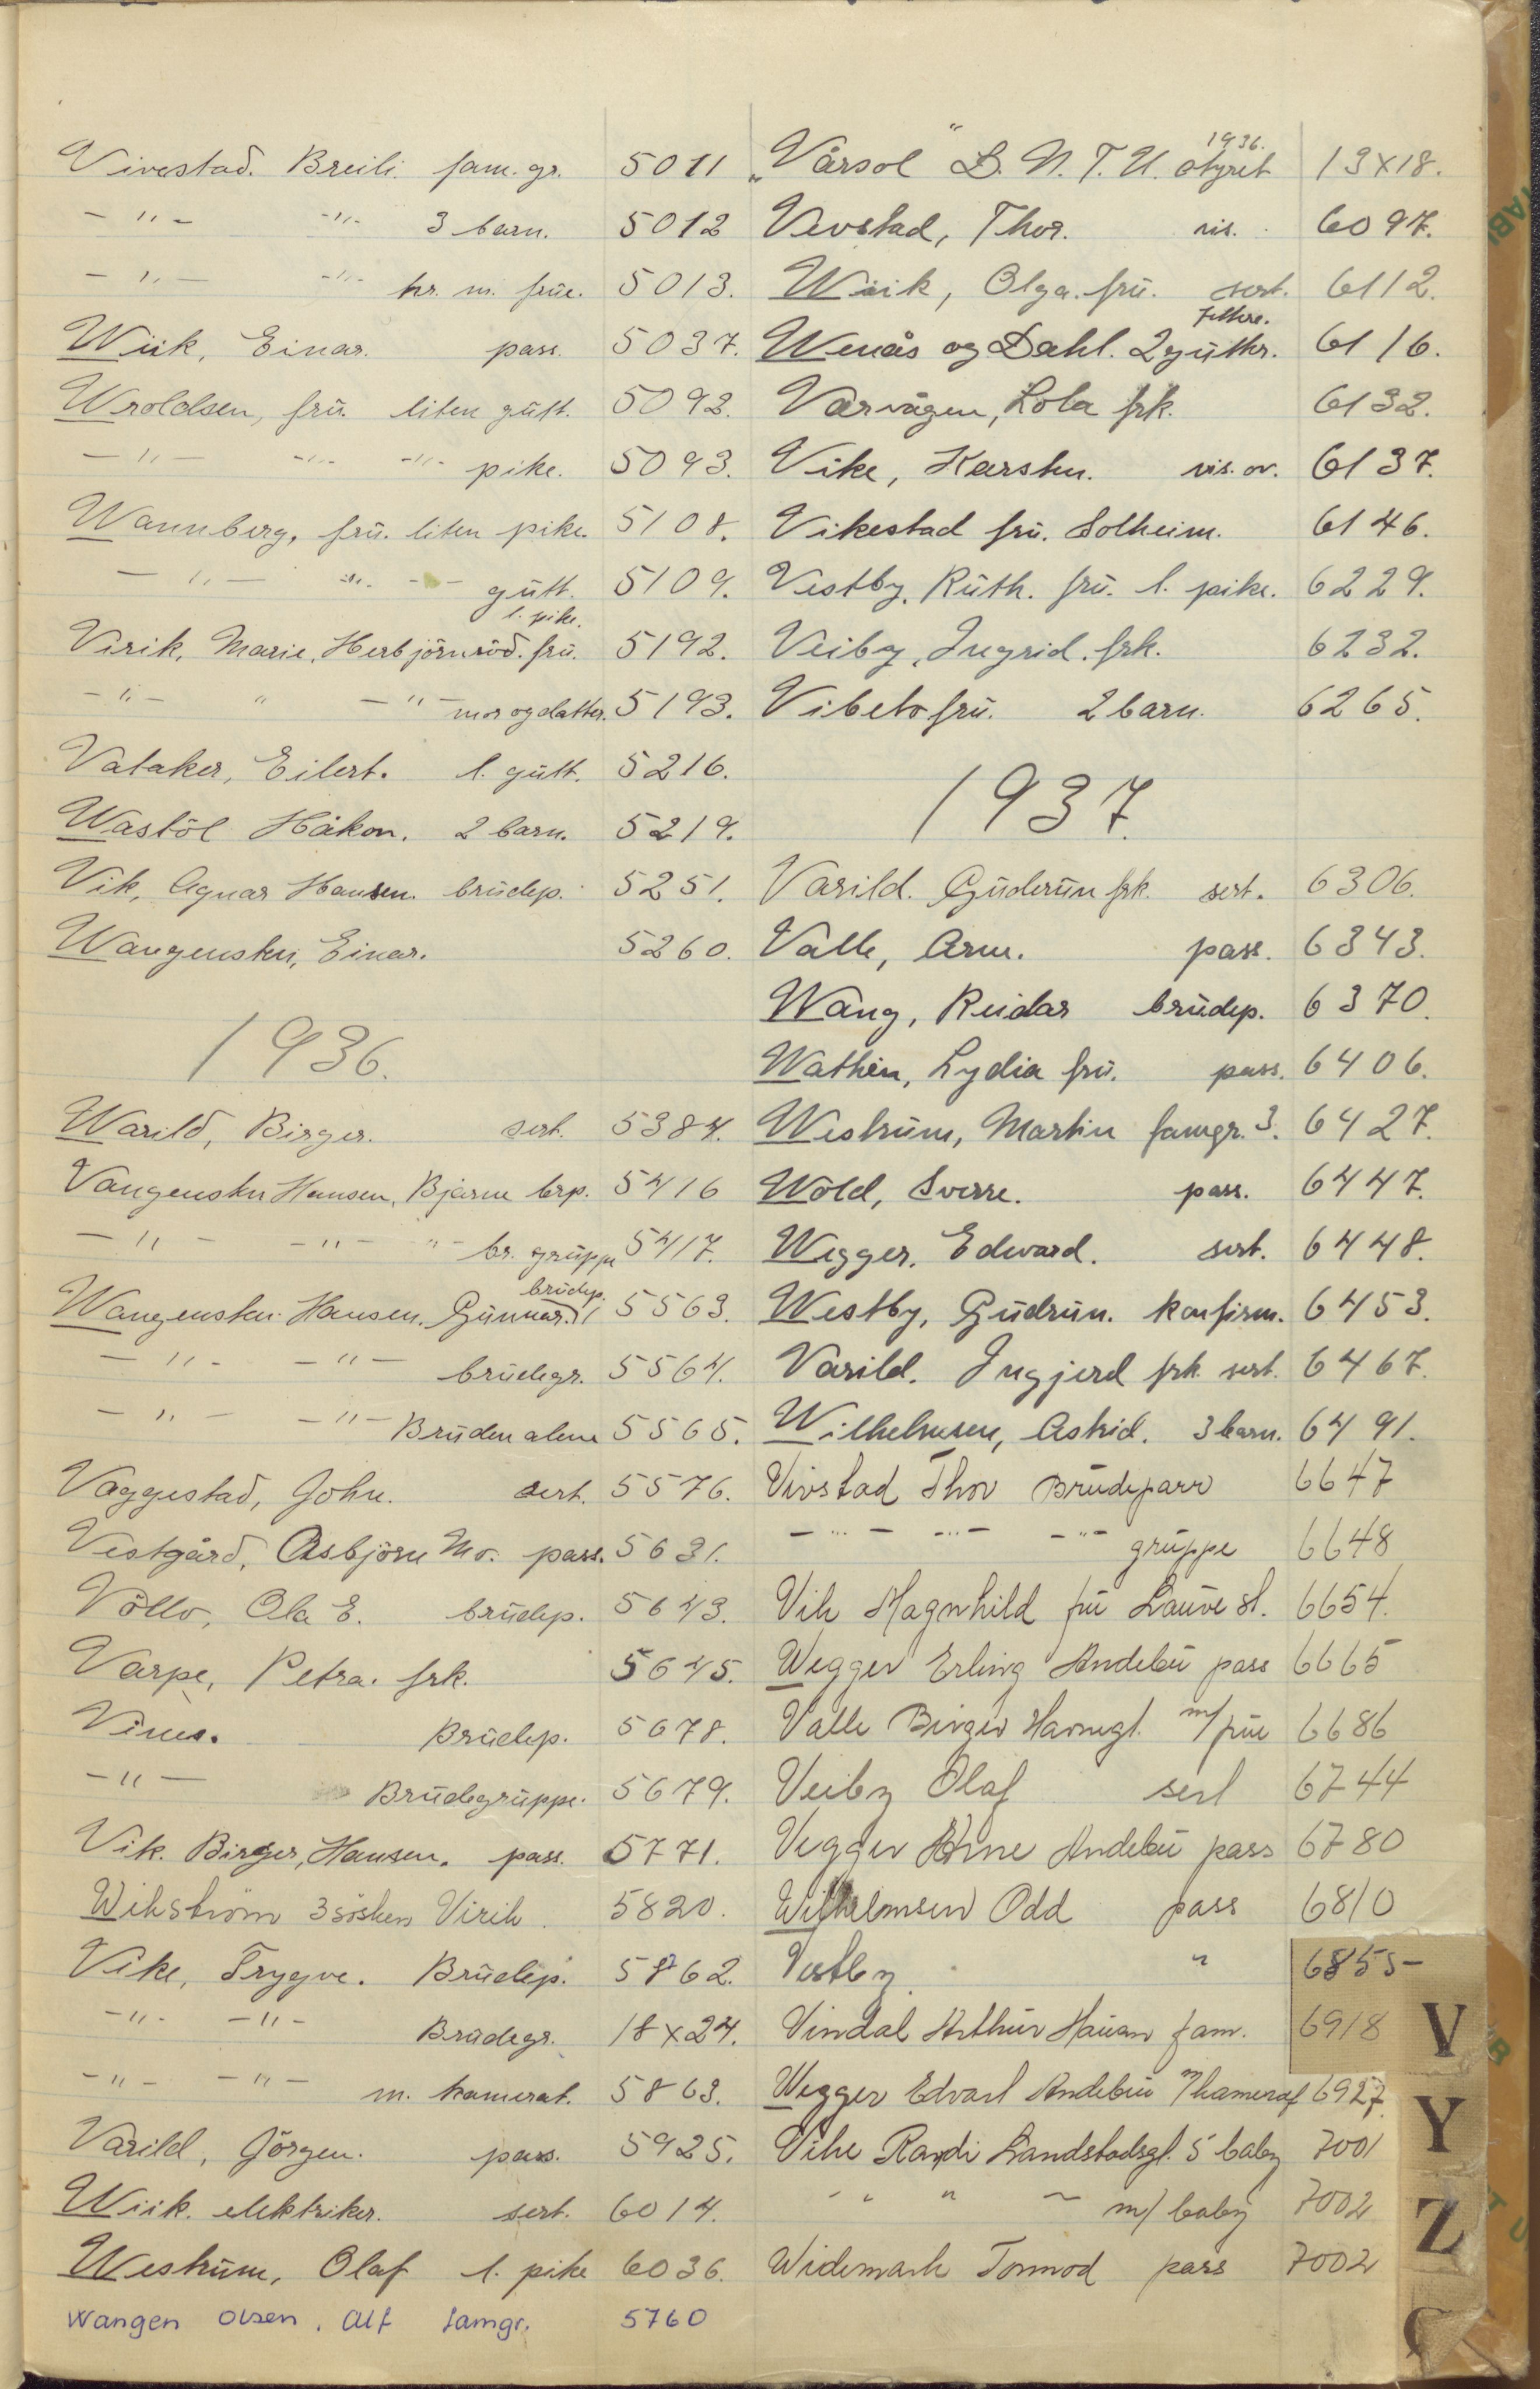 Vivestad. Breili. fam. gr. 5011
- " - -"- 3 barn. 5012
- " - -"- hr. m. frue. 5013.
Wiik, Einar. pass. 5037.
Wroldsen, frū. liten gūtt. 5092.
- " - -"- -"- pike. 5093.
Wannberg, frū. liten pike. 5108.
- " - -"- - - gūtt. 5109.
l. pike.
Virik, Marie, Herbjörnröd. frū. 5192.
- " - " - " - mor og datter. 5193.
Vataker, Eilert. l. gūtt. 5216.
Wastöl Håkon. 2 barn. 5219.
Vik, Agnar Hansen. brūdep. 5251.
Wangensten, Einar. 5260.
1936.
Warild, Birger. sert. 5384.
Vangensten Hansen, Bjarne brp. 5416
- " - - " - " - br. grūppe 5417.
brūdep.
Wangensten Hansen. Gūnnar. 5563.
- " - - " - brūdegr. 5564.
- " - - " - Brūden alene 5565.
Vaggestad, John. sert. 5576.
Vestgård, Asbjörn Mo. pass. 5631.
Vollo, Ola E. brūdep. 5643.
Varpe, Petra. frk. 5645.
Vines. Brūdep. 5678.
- " - Brūdegrūppe. 5679.
Vik. Birger, Hansen. pass. 5771.
Wikström 3 sösken Virik. 5820.
Vike, Trygve. Brūdep. 5862.
- " - - " - Brūdegr. 18x24.
- " - - " - m. kamerat. 5863.
Varild, Jörgen. pass. 5925.
Wiik. elektriker. sert. 6014.
Westrūm, Olaf l. pike 6036.
Wangen Olsen, Alf famgr. 5760
1936.
"Vårsol" D. N. T. U. styret 13x18.
Vevstad, Thor. vis. 6097.
Wiik, Olga. frū. sert. 6112.
Wenås og Dahl. 2 gūtter. 6116.
Varvågen, Lola frk. 6132.
Vike, Karsten. vis. ov. 6137.
Vikestad frū. Solheim. 6146.
Vestby, Rūth. frū. l. pike. 6229.
Veiby, Ingrid. frk. 6232.
Vibeto frū. 2 barn. 6265.
1937.
Varild. Gūderūn frk. sert. 6306.
Valle, Arne. pass. 6343.
Wang, Reidar brūdep. 6370.
Wathén, Lydia frū. pass. 6406.
Westrūm, Martin famgr. 3. 6427.
Wold, Sverre. pass. 6447.
Wegger, Edward. sert. 6448.
Westby, Gūdrūn. konfirm. 6453.
Varild. Ingjerd frk. sert. 6467.
Wilhelmsen, Astrid. 3 barn. 6491.
Vivstad Thor Brūdepare 6647
- " - - " - - " - grūppe 6648
Vik Magnhild frū Laūve st. 6654.
Wegger Erling Andebū pass 6665
Valle Birger Havnegt. m/ frūe 6686
Veiby Olaf sert 6744
Vegger Arne Andebū pass 6780
Wilhelmsen Odd pass 6810
Vestby. " 6855-
Vindal Arthūr Haūan fam. 6918
Wegger Edvart Andebū m/kamerat 6927.
Vike Randi Landstadsgt. 5 baby 7001
" " " - m/ baby 7002
Widemark Tormod pass 7002
V
Y
Z